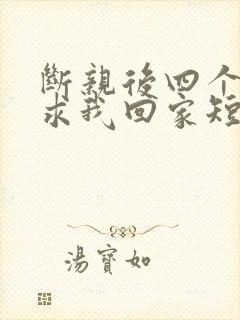 斷親後四个
求我回家短
湯寶如